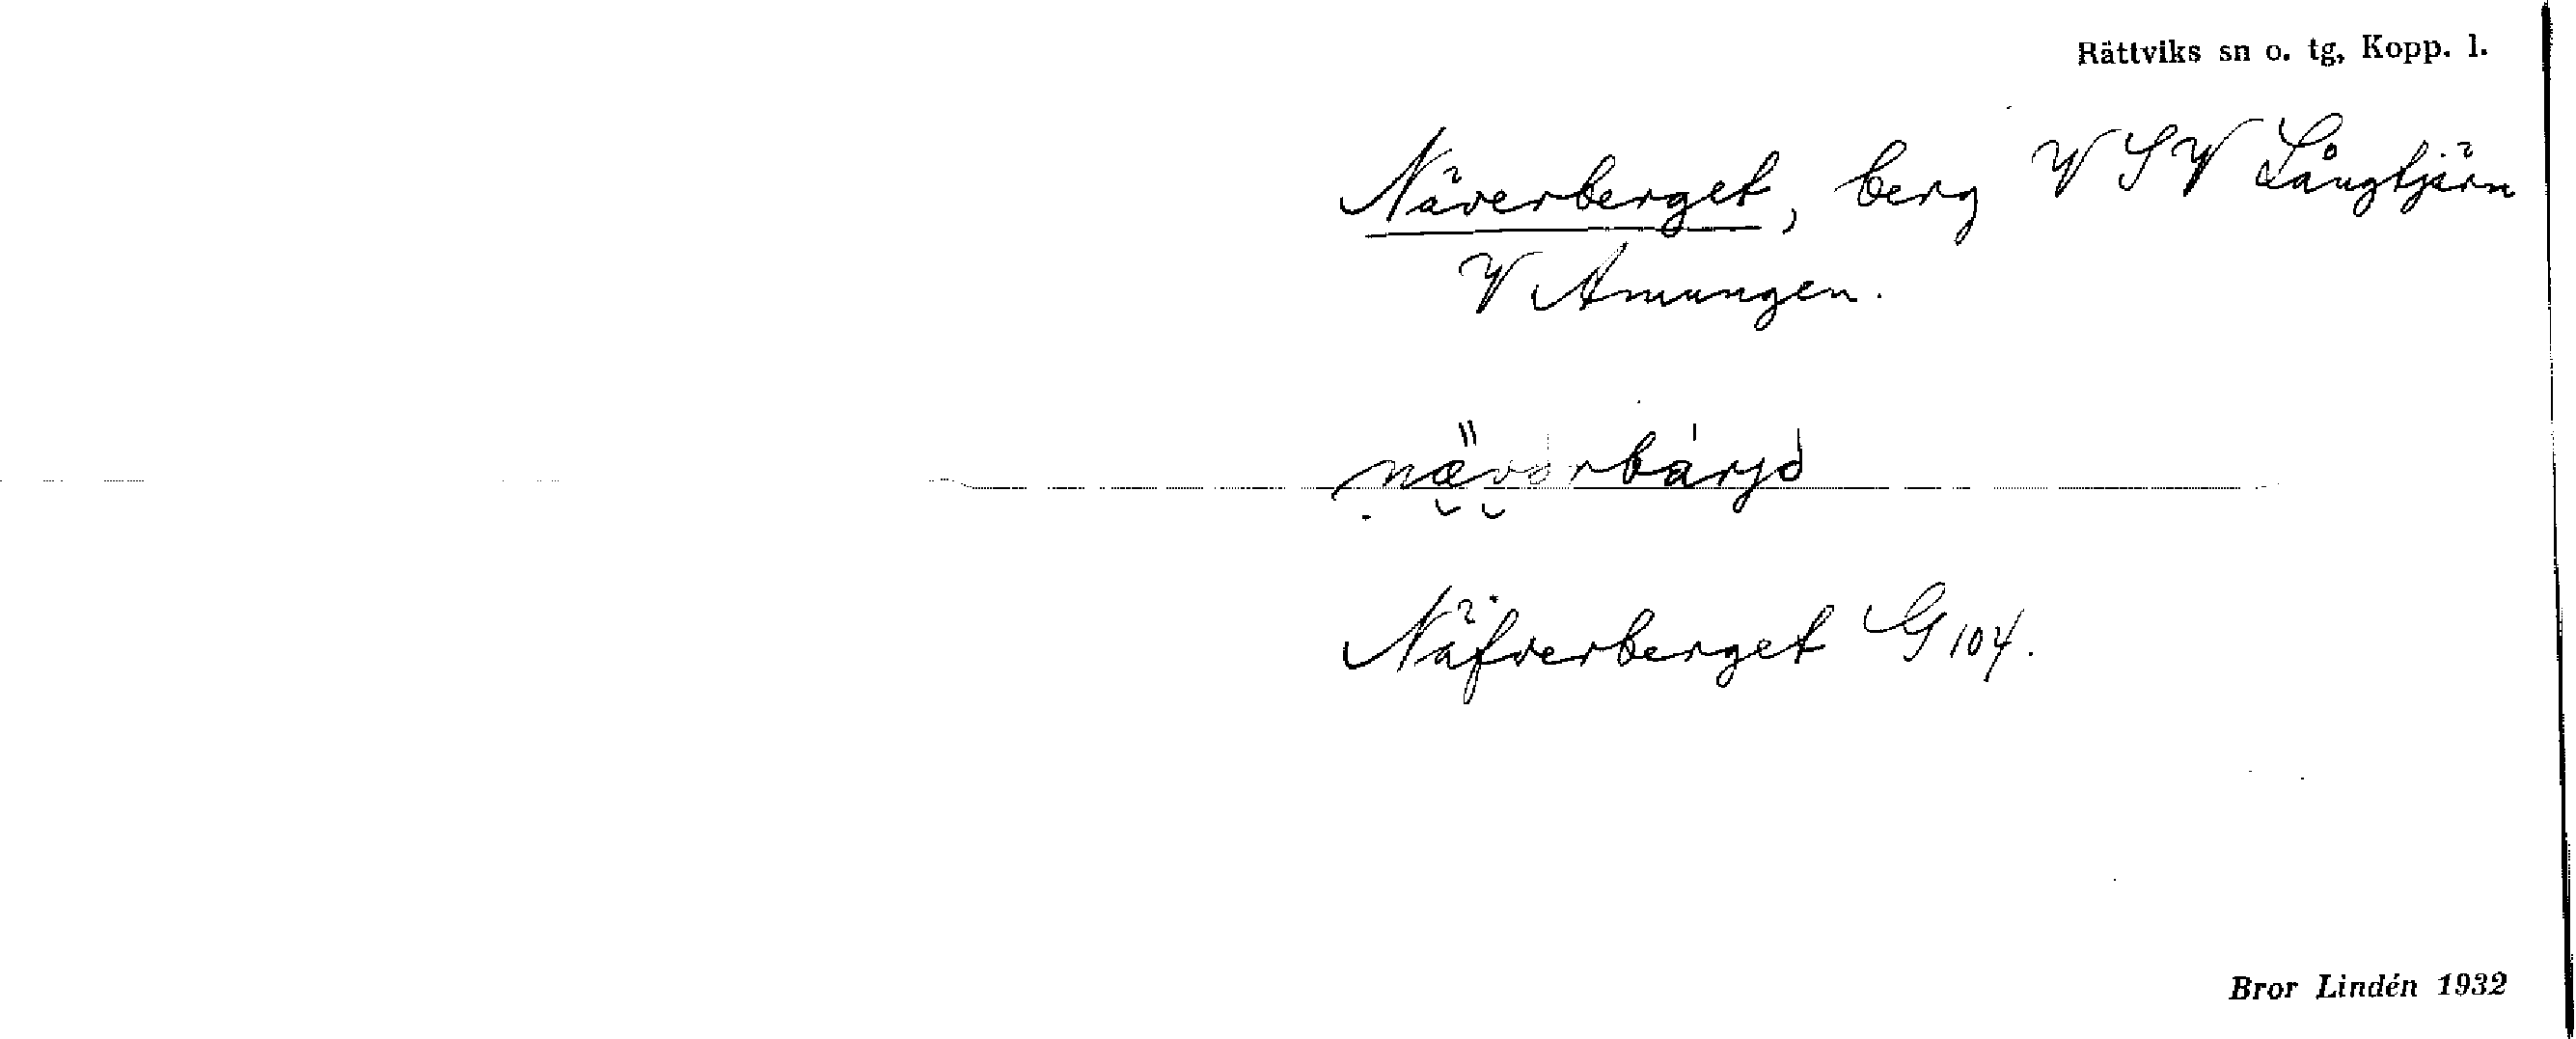 Rättviks sn o. tg, Kopp. l.
Näverberget, berg VSV Långtjärn
V Amungen.
Näfverberget G 104.
Bror Lindén 1932